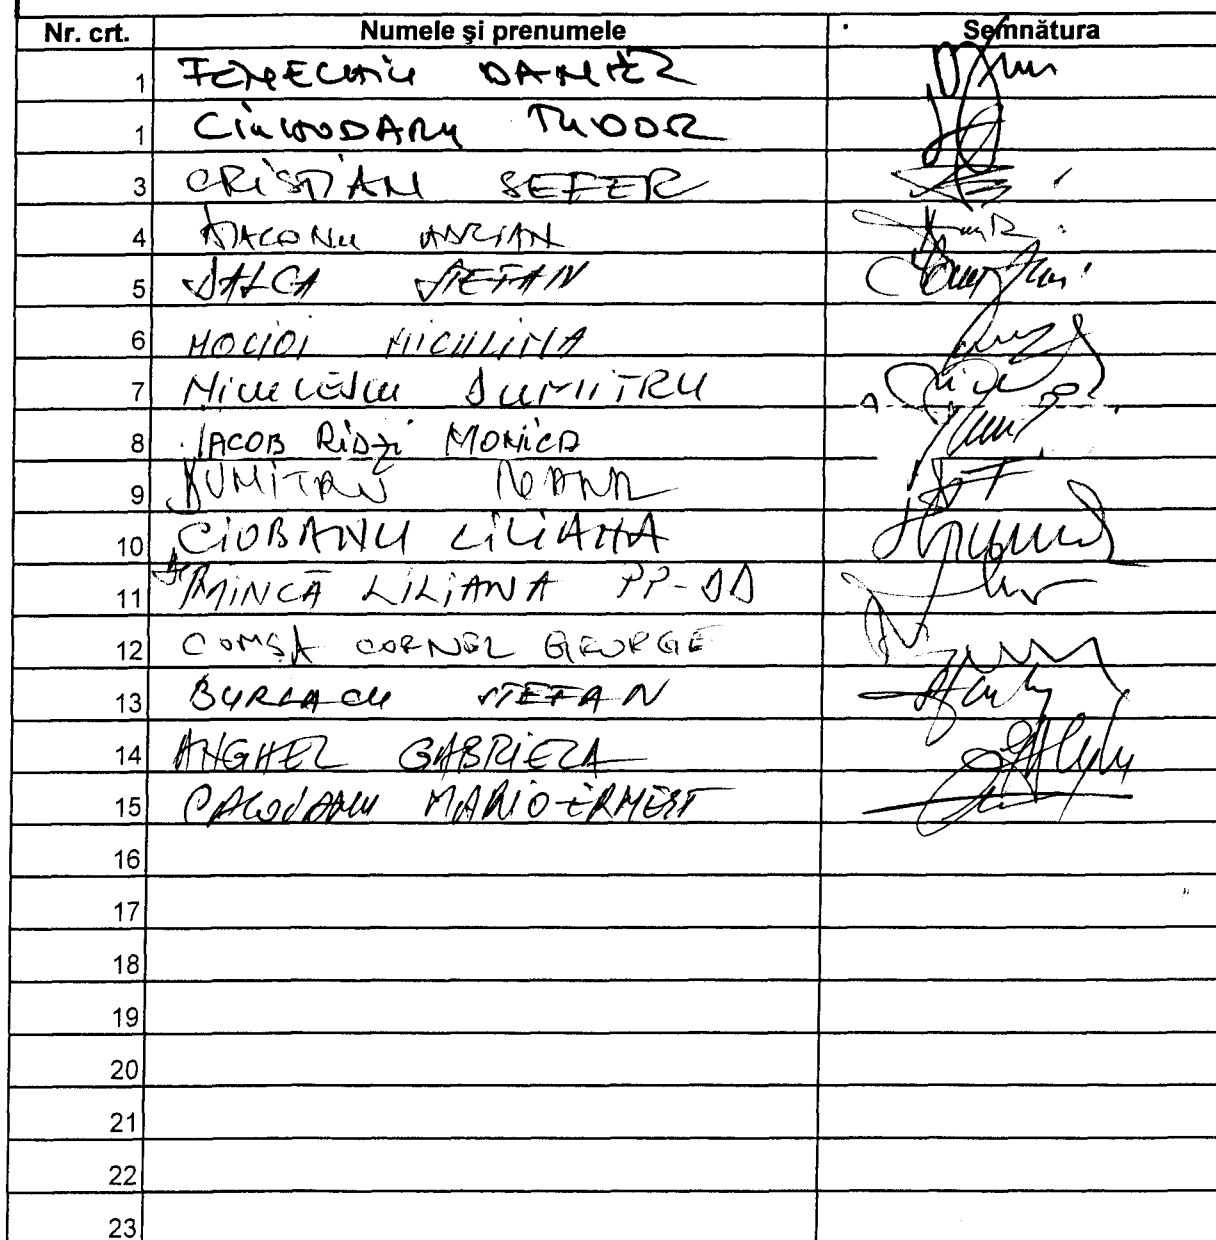 Nr. crt. Numele şi prenumele Semnătura
1 FENECHIU DANIEL
1 CIUHODARU TUDOR
3 CRISTIAN SEFER
4 DIACONU ADRIAN
5 DALCA STEFAN
6 MOCIOI NICULINA
7 NICULESCU DUMITRU
8 IACOB RIDZI MONICA
9 DUMITRU IOANA
10 CIOBANU LILIANA
11 MINCĂ LILIANA PP-DD
12 COMŞA CORNEL GEORGE
13 BURLACU STEFAN
14 ANGHEL GABRIELA
15 MARIO-ERNEST
16
17
18
19
20
21
22
23